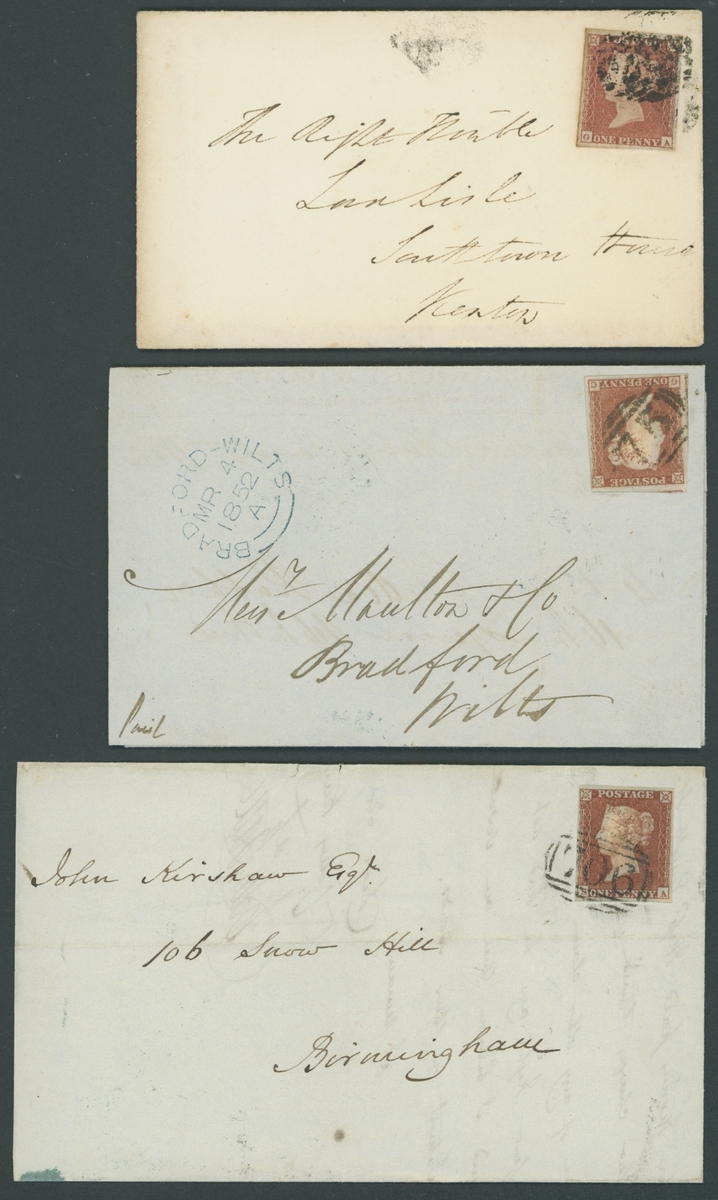 POSTAGE
G ONE PENNY A
The Right Honble
Lord Lisle
South town House
Kenton
G ONE PENNY C
POSTAGE
BRADFORD-WILTS
MR 4
1852
A
Messrs Moulton & Co
Bradford
Wilts
Paid
POSTAGE
ONE PENNY A
706
John Kirshaw Esqr.
106 Snow Hill
Birmingham